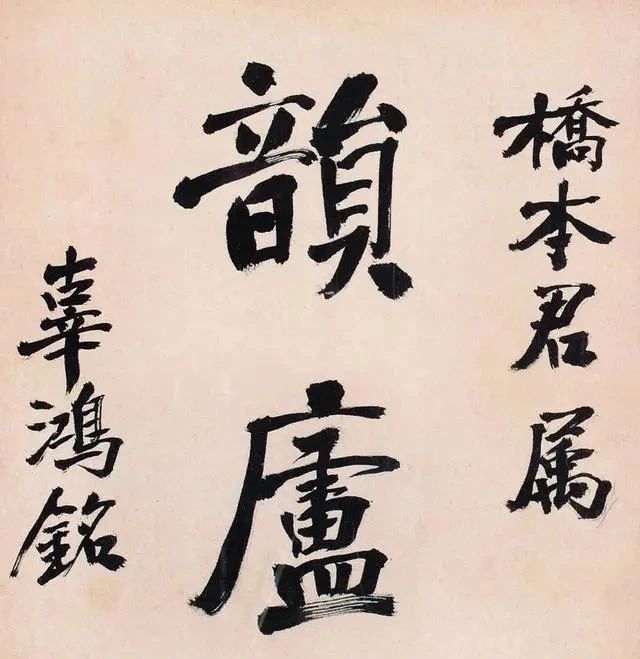 橋本君属
韻廬
辜鴻銘